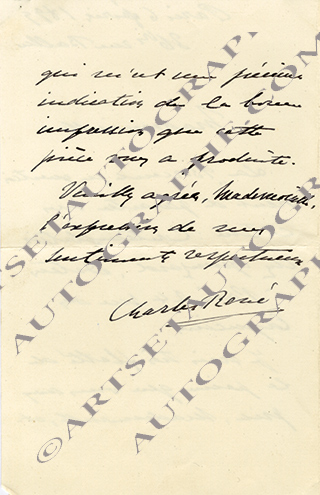 qui m'est une précieuse
indication de la bonne
impression que cette
pièce vous a produite.
Veuillez agréer, Mademoiselle,
l'expression de mes
sentiments respectueux
Charles René
©ARTSETAUTOGRAPHE.COM
AUTOGRAPHE